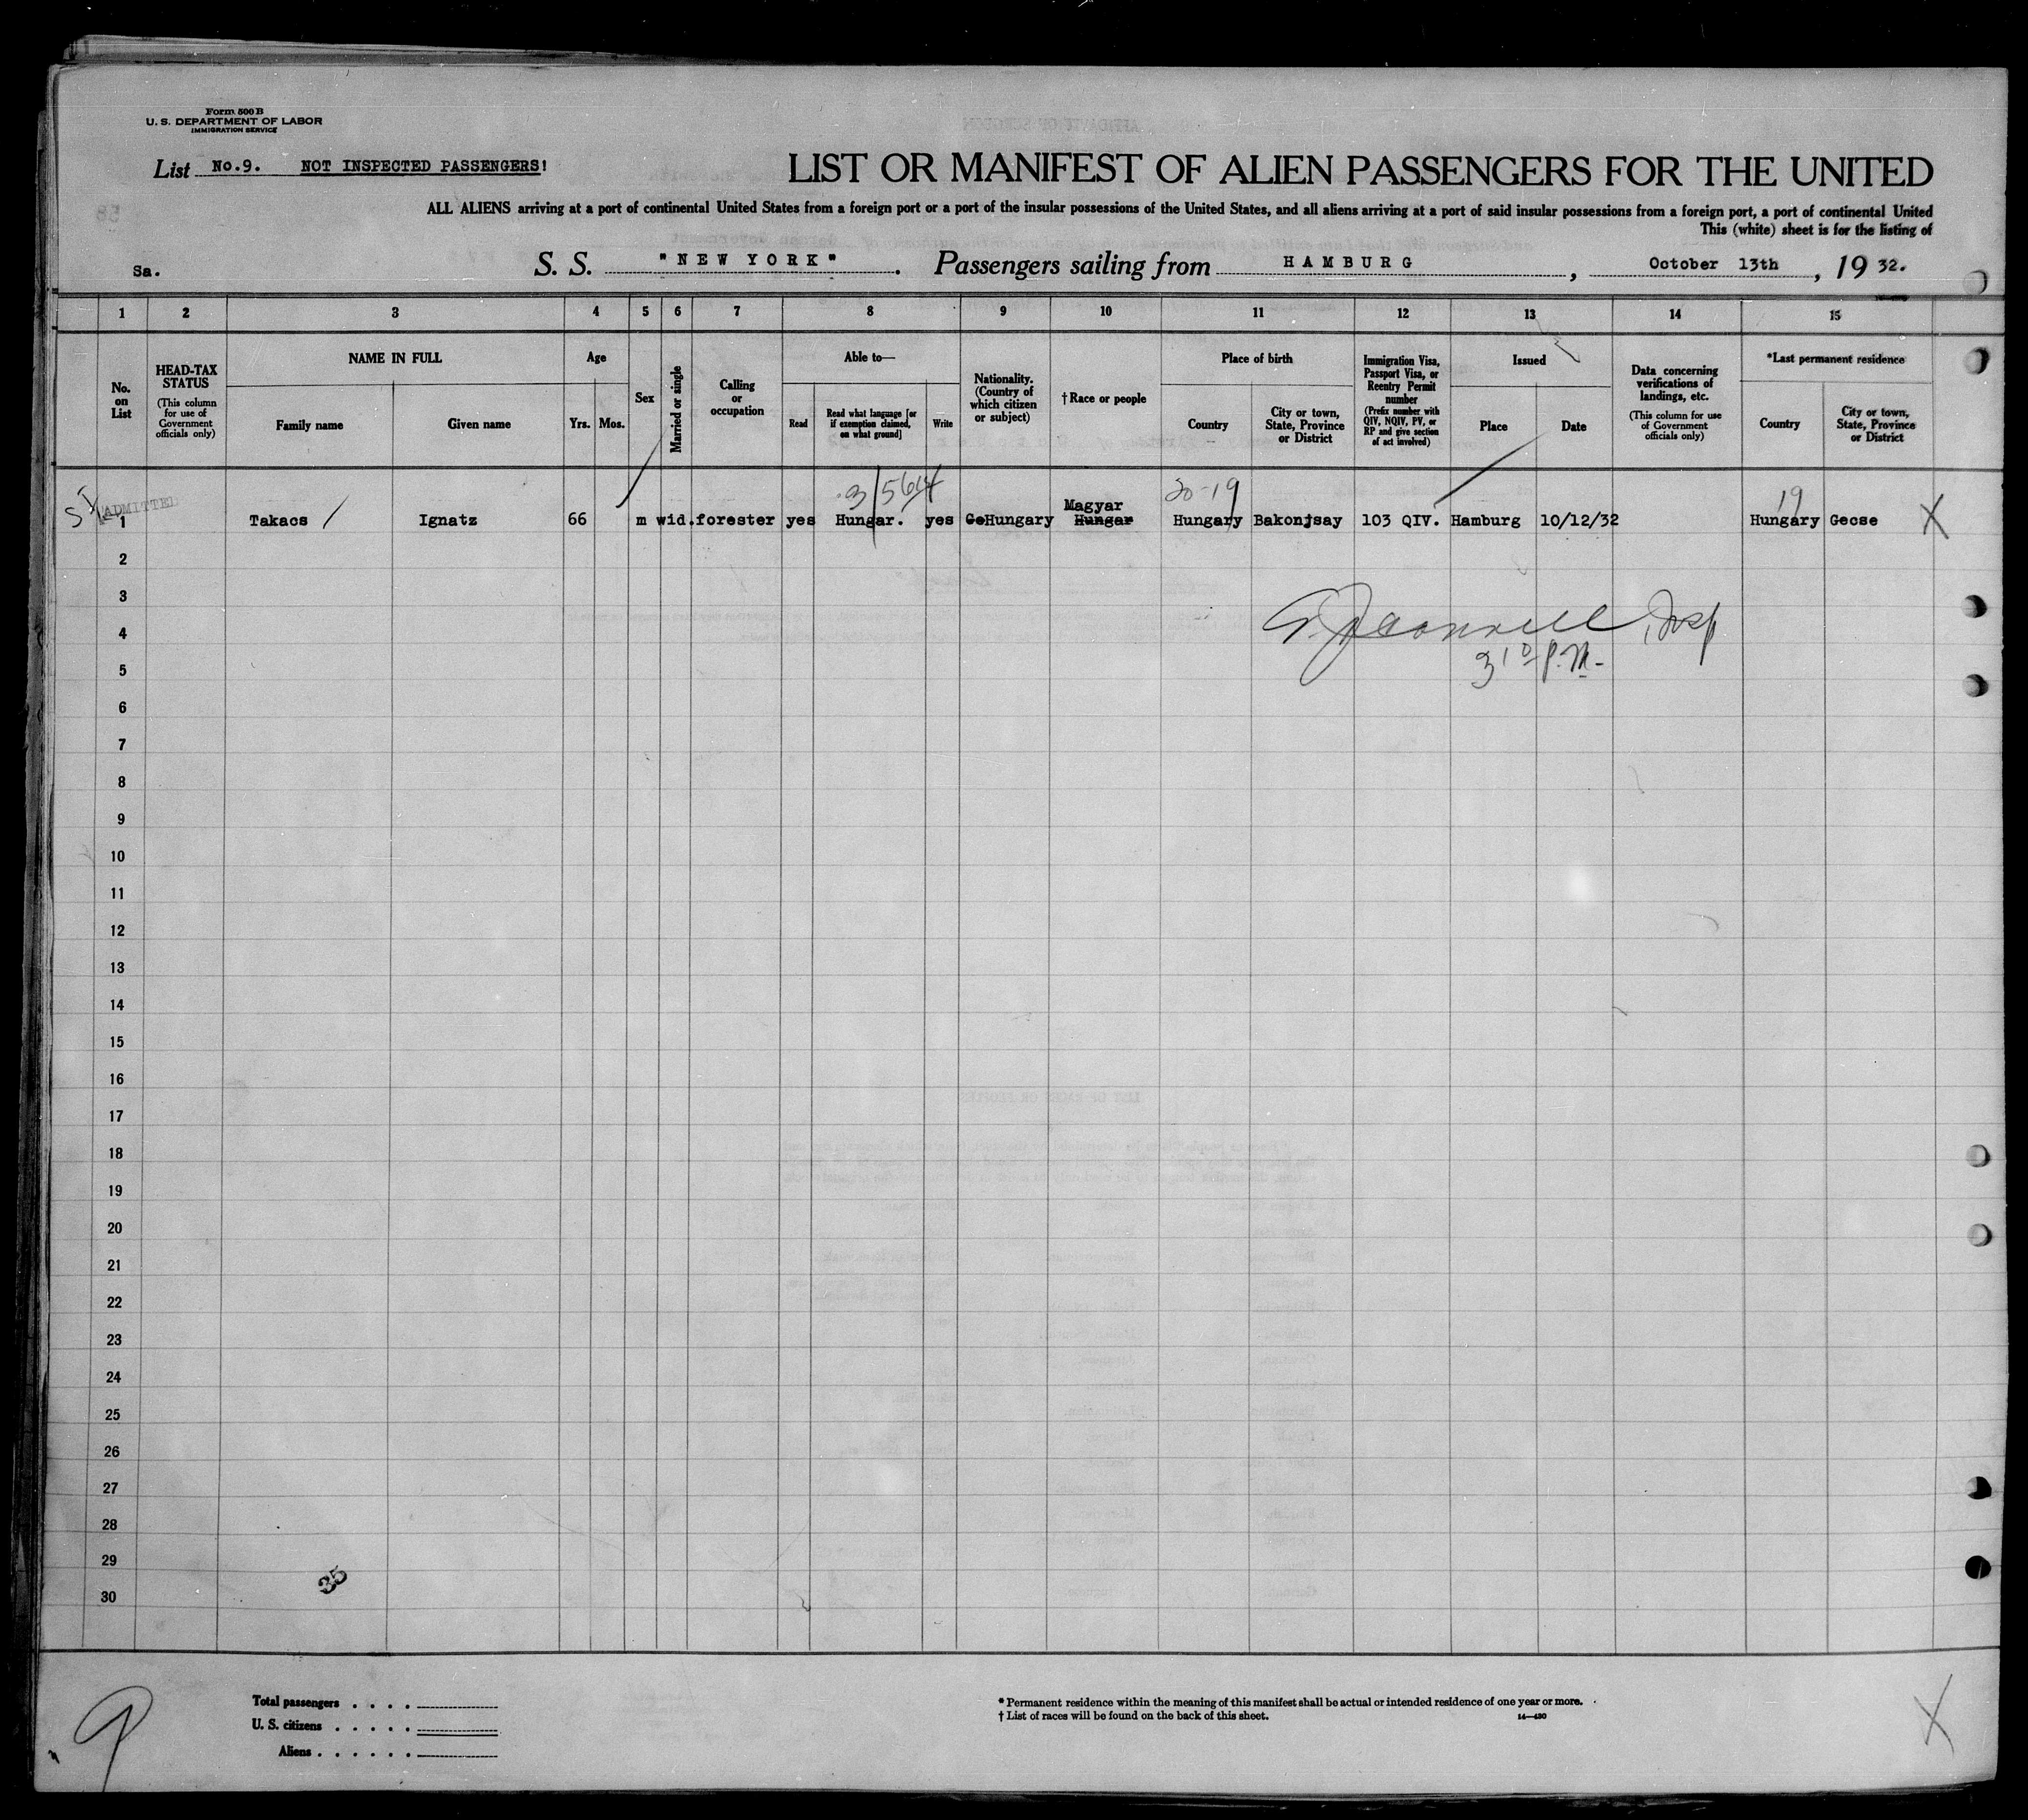 Form 500 B
U. S. DEPARTMENT OF LABOR
IMMIGRATION SERVICE
List No.9. NOT INSPECTED PASSENGERS!
LIST OR MANIFEST OF ALIEN PASSENGERS FOR THE UNITED
ALL ALIENS arriving at a port of continental United States from a foreign port or a port of the insular possessions of the United States, and all aliens arriving at a port of said insular possessions from a foreign port, a port of continental United
This (white) sheet is for the listing of
Sa.
S. S. "NEW YORK". Passengers sailing from HAMBURG, October 13th, 1932.
1 2 3 4 5 6 7 8 9 10 11 12 13 14 15
No. on List
HEAD-TAX STATUS
(This column for use of Government officials only)
NAME IN FULL
Family name
Given name
Age
Yrs. Mos.
Sex
Married or single
Calling or occupation
Able to—
Read
Read what language [or if exemption claimed, on what ground]
Write
Nationality. (Country of which citizen or subject)
† Race or people
Place of birth
Country
City or town, State, Province or District
Immigration Visa, Passport Visa, or Reentry Permit number
(Prefix number with QIV, NQIV, PV, or RP and give section of act involved)
Issued
Place
Date
Data concerning verifications of landings, etc.
(This column for use of Government officials only)
*Last permanent residence
Country
City or town, State, Province or District
3/5614 20-19 19
ADMITTED
Magyar
1 Takacs / Ignatz 66 m wid. forester yes Hungar. yes GeHungary Hungar Hungary Bakonjsay 103 QIV. Hamburg 10/12/32 Hungary Gecse X
2
3
4
Insp
5
3 10 P.M.
6
7
8
9
10
11
12
13
14
15
16
17
18
19
20
21
22
23
24
25
26
27
28
29
35
30
9
Total passengers . . . .
U. S. citizens . . . . .
Aliens . . . . . .
* Permanent residence within the meaning of this manifest shall be actual or intended residence of one year or more.
† List of races will be found on the back of this sheet.
14—430
X